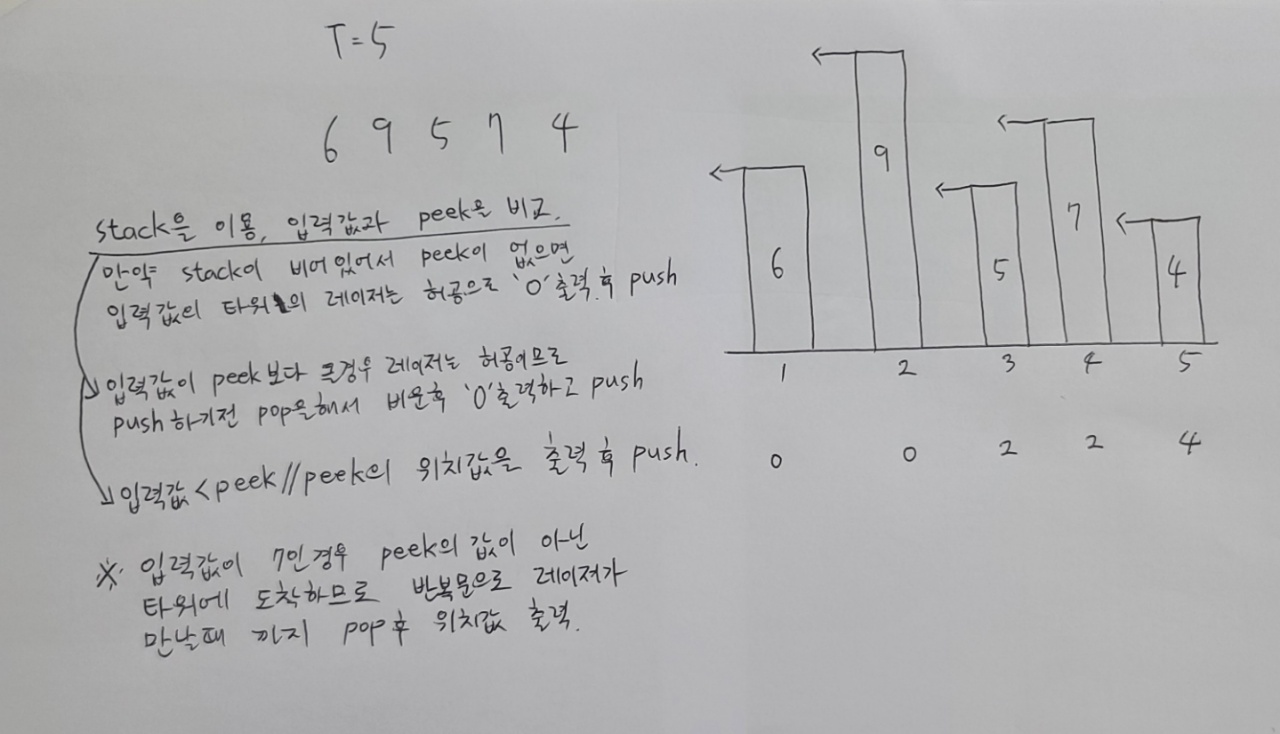 T=5
6 9 5 7 4
stack을 이용, 입력값과 peek을 비교.
만약 stack이 비어있어서 peek이 없으면
입력값의 타워의 레이저는 허공으로 '0'출력 후 push
입력값이 peek보다 큰경우 레이저는 허공이므로
push하기전 pop을해서 비운후 '0'출력하고 push
입력값<peek//peek의 위치값을 출력 후 push.
※ 입력값이 7인경우 peek의 값이 아닌
타워에 도착하므로 반복문으로 레이저가
만날때 까지 pop후 위치값 출력.
6 9 5 7 4
1 2 3 4 5
0 0 2 2 4